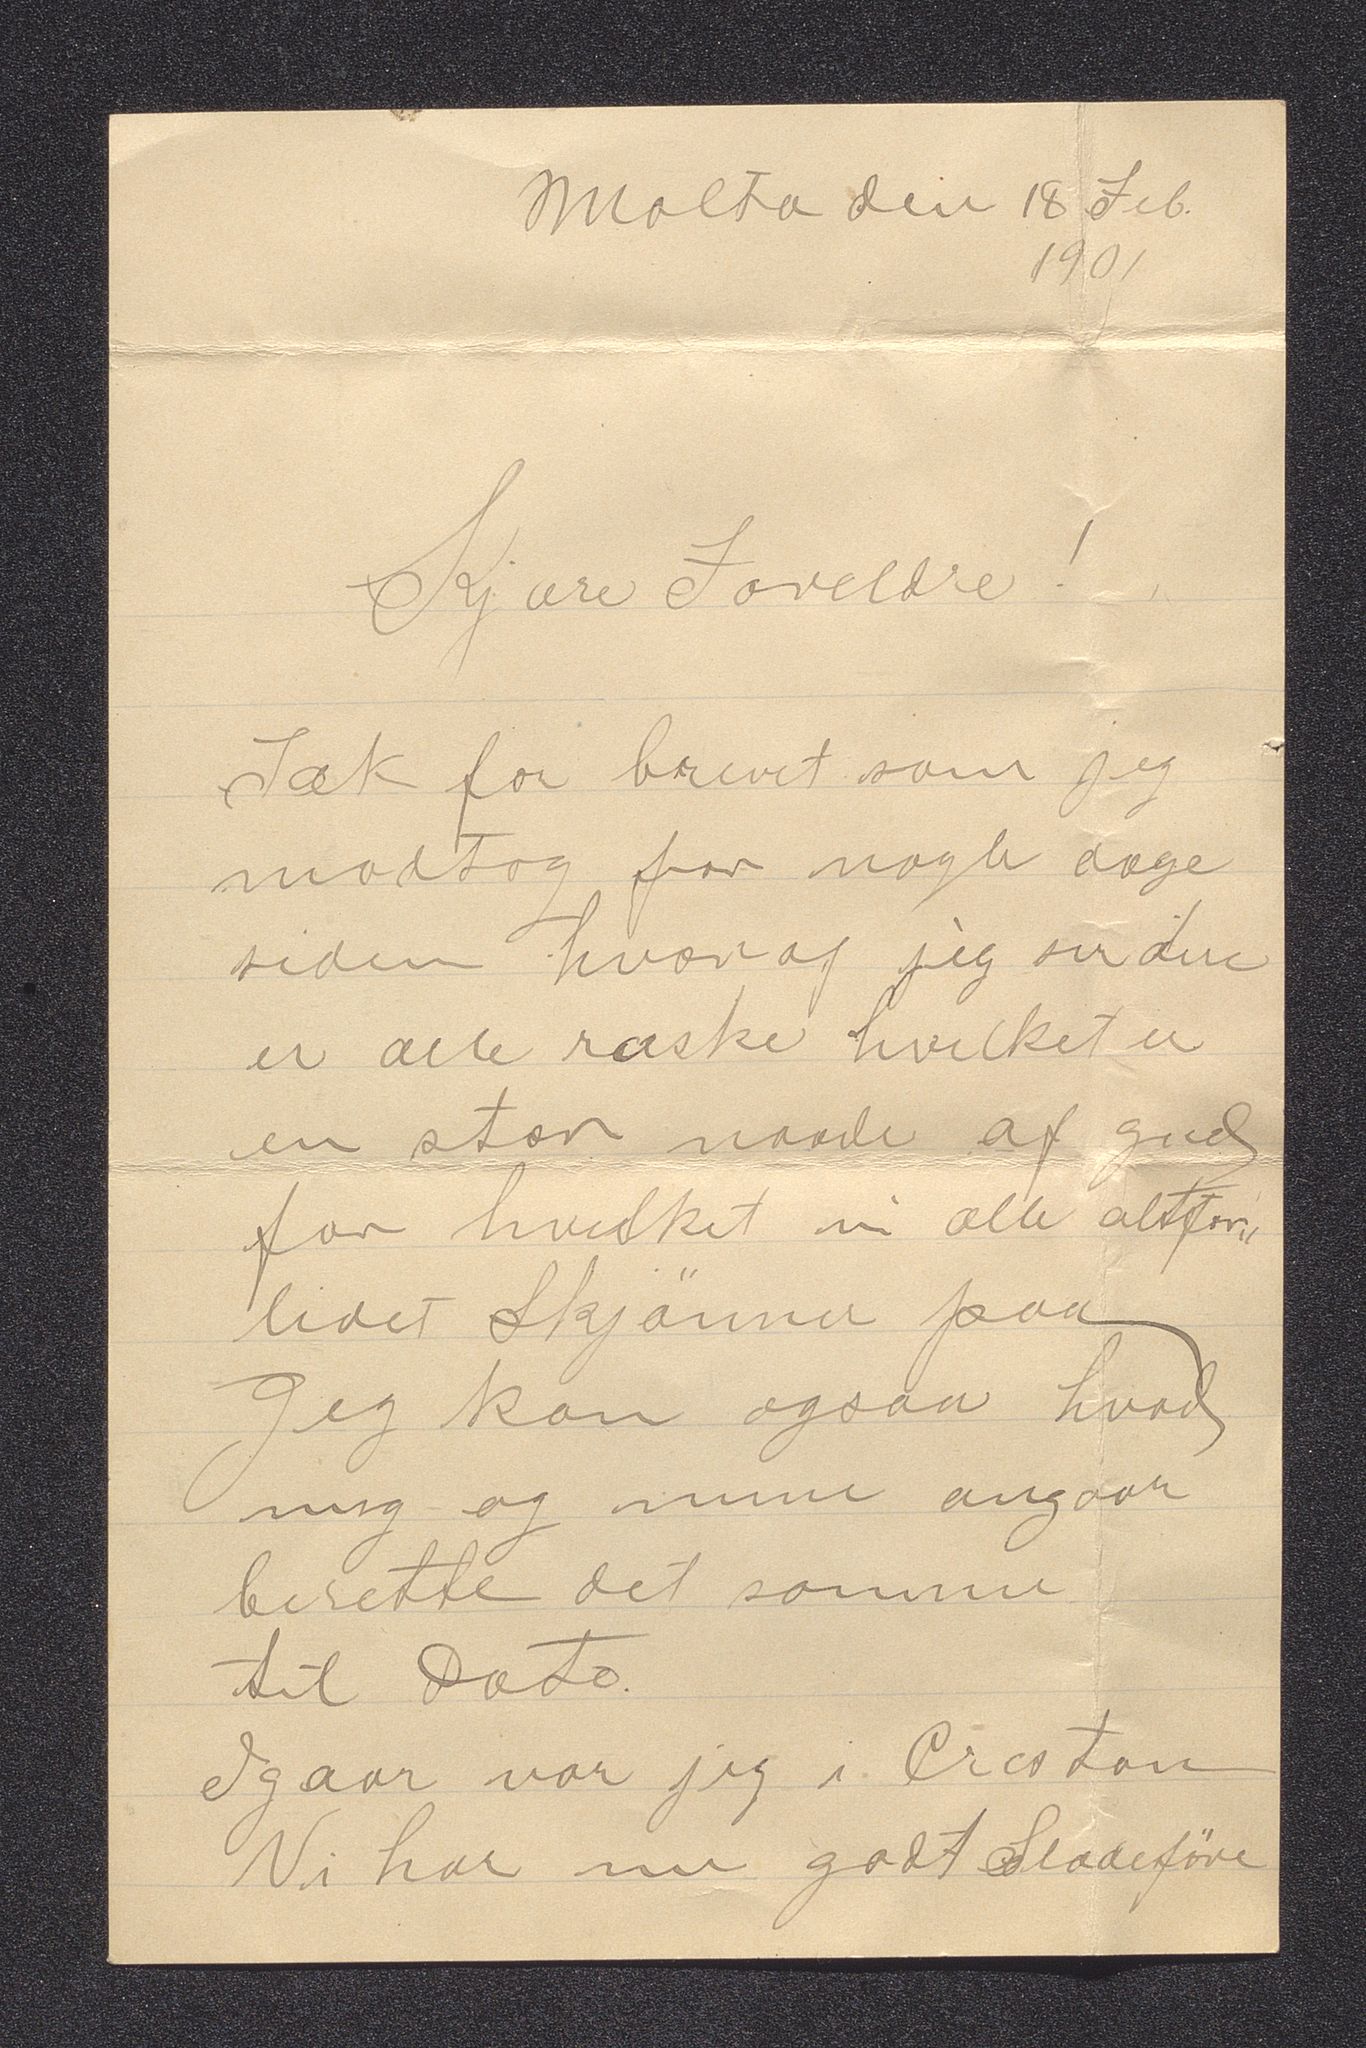 Malta den 18 Feb.
1901
Kjære Forældre!
Tak for brevet som jeg
modtog for nogle dage
siden hvoraf jeg ser dere
er alle raske hvilket er
en stor naade af gud
for hvilket vi alle altfor
lidet Skjönner paa
Jeg kan ogsaa hvad
mig og mine angaar
berette det samme
til Dato.
Igaar var jeg i Creston
Vi har nu godt Sladeföre